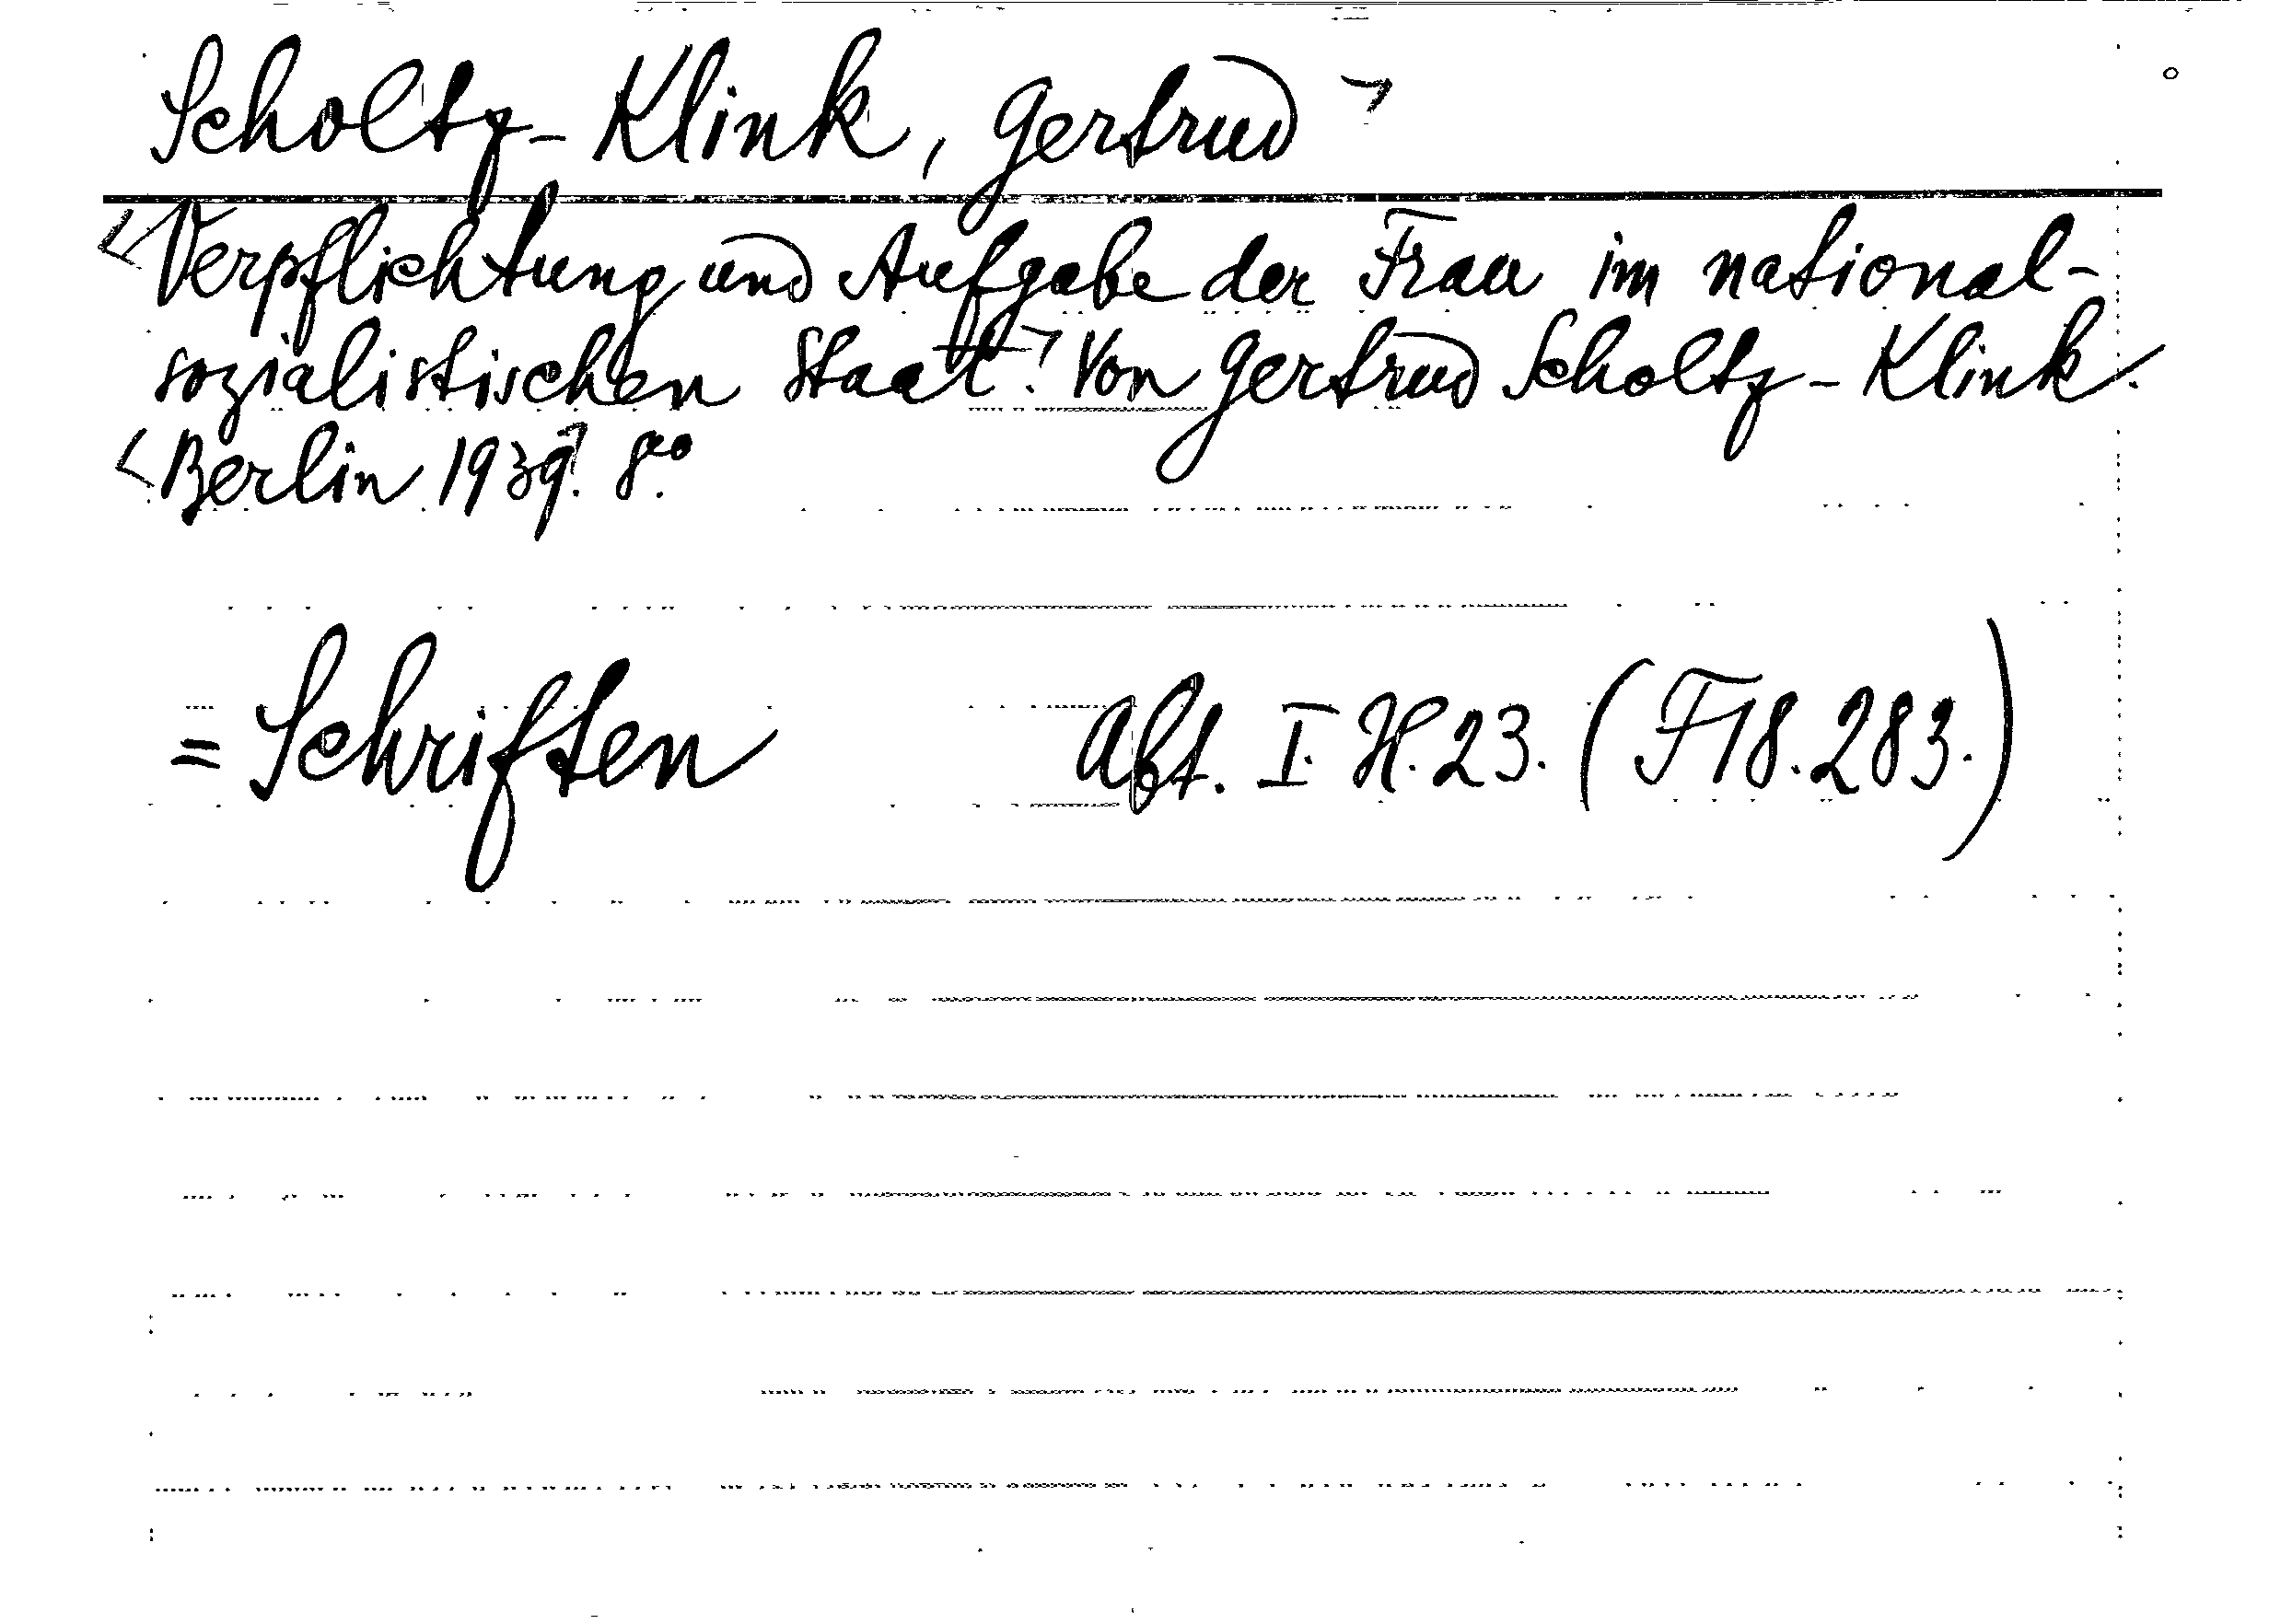 Scholtz-Klink, Gertrud
Verpflichtung und Aufgabe der Frau im national-
sozialistischen Staat. Von Gertrud Scholtz-Klink.
Berlin 1939. 8°.
= Schriften Abt. I. H. 23. (F 18.283.)